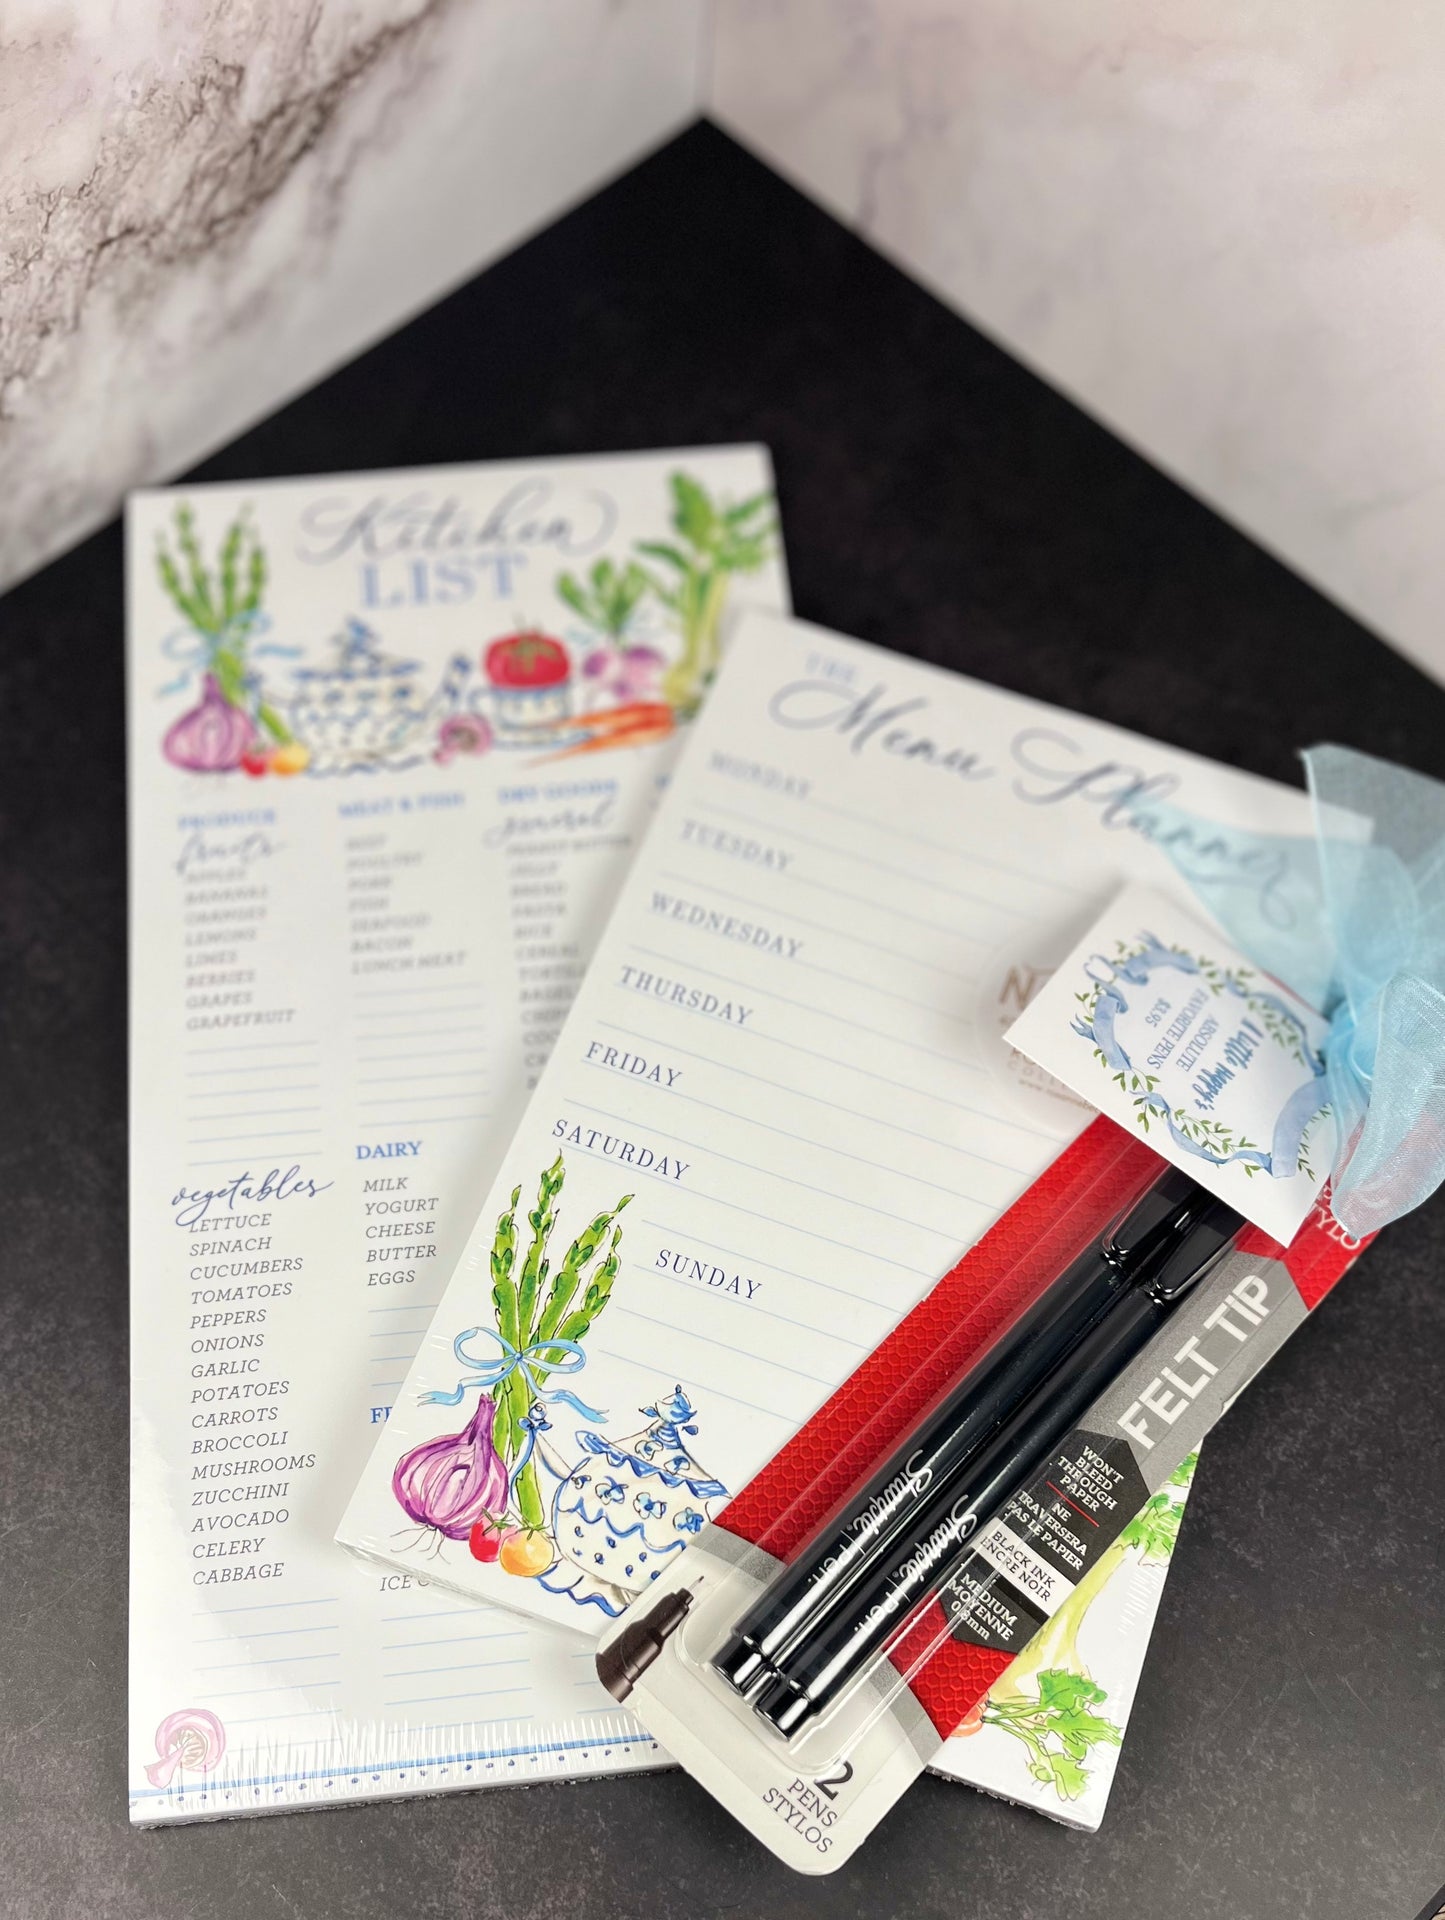 Kitchen
LIST
PRODUCE
fruits
APPLES
BANANAS
ORANGES
LEMONS
LIMES
BERRIES
GRAPES
GRAPEFRUIT
vegetables
LETTUCE
SPINACH
CUCUMBERS
TOMATOES
PEPPERS
ONIONS
GARLIC
POTATOES
CARROTS
BROCCOLI
MUSHROOMS
ZUCCHINI
AVOCADO
CELERY
CABBAGE
MEAT & FISH
BEEF
POULTRY
PORK
FISH
SEAFOOD
BACON
LUNCH MEAT
DAIRY
MILK
YOGURT
CHEESE
BUTTER
EGGS
ICE
DRY GOODS
general
PEANUT BUTTER
JELLY
BREAD
PASTA
RICE
CEREAL
THE
Menu Planner
MONDAY
TUESDAY
WEDNESDAY
THURSDAY
FRIDAY
SATURDAY
SUNDAY
A Little Happy's
ABSOLUTE
FAVORITE PENS
$3.95
FELT TIP
WON'T
BLEED
THROUGH
PAPER
NE
TRAVERSERA
PAS LE PAPIER
BLACK INK
ENCRE NOIR
MEDIUM
MOYENNE
0.8mm
Sharpie. Pen.
Sharpie. Pen.
2
PENS
STYLOS